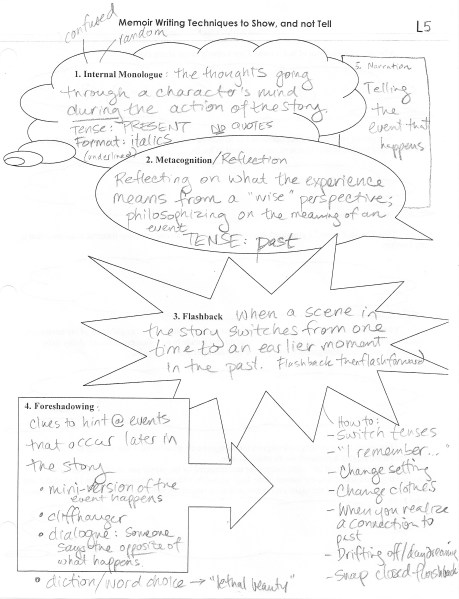 Memoir Writing Techniques to Show, and not Tell
L5
confused
random
1. Internal Monologue: the thoughts going
through a character's mind
during the action of the story.
Tense: PRESENT NO QUOTES
Format: italics
(underlined)
5. Narration
Telling
the
event that
happens
2. Metacognition/Reflection
Reflecting on what the experience
means from a "wise" perspective;
philosophizing on the meaning of an
event
TENSE: past
3. Flashback when a scene in
the story switches from one
time to an earlier moment
in the past. Flashback then flashforward
4. Foreshadowing:
clues to hint @ events
that occur later in
the story
• mini-version of the
event happens
• cliffhanger
• dialogue: someone
says the opposite of
what happens.
• diction/word choice → "lethal beauty"
How to:
- Switch tenses
- "I remember..."
- Change setting
- Change clothes
- When you realize
a connection to
past
- Drifting off/daydreaming
- Snap closed flashback